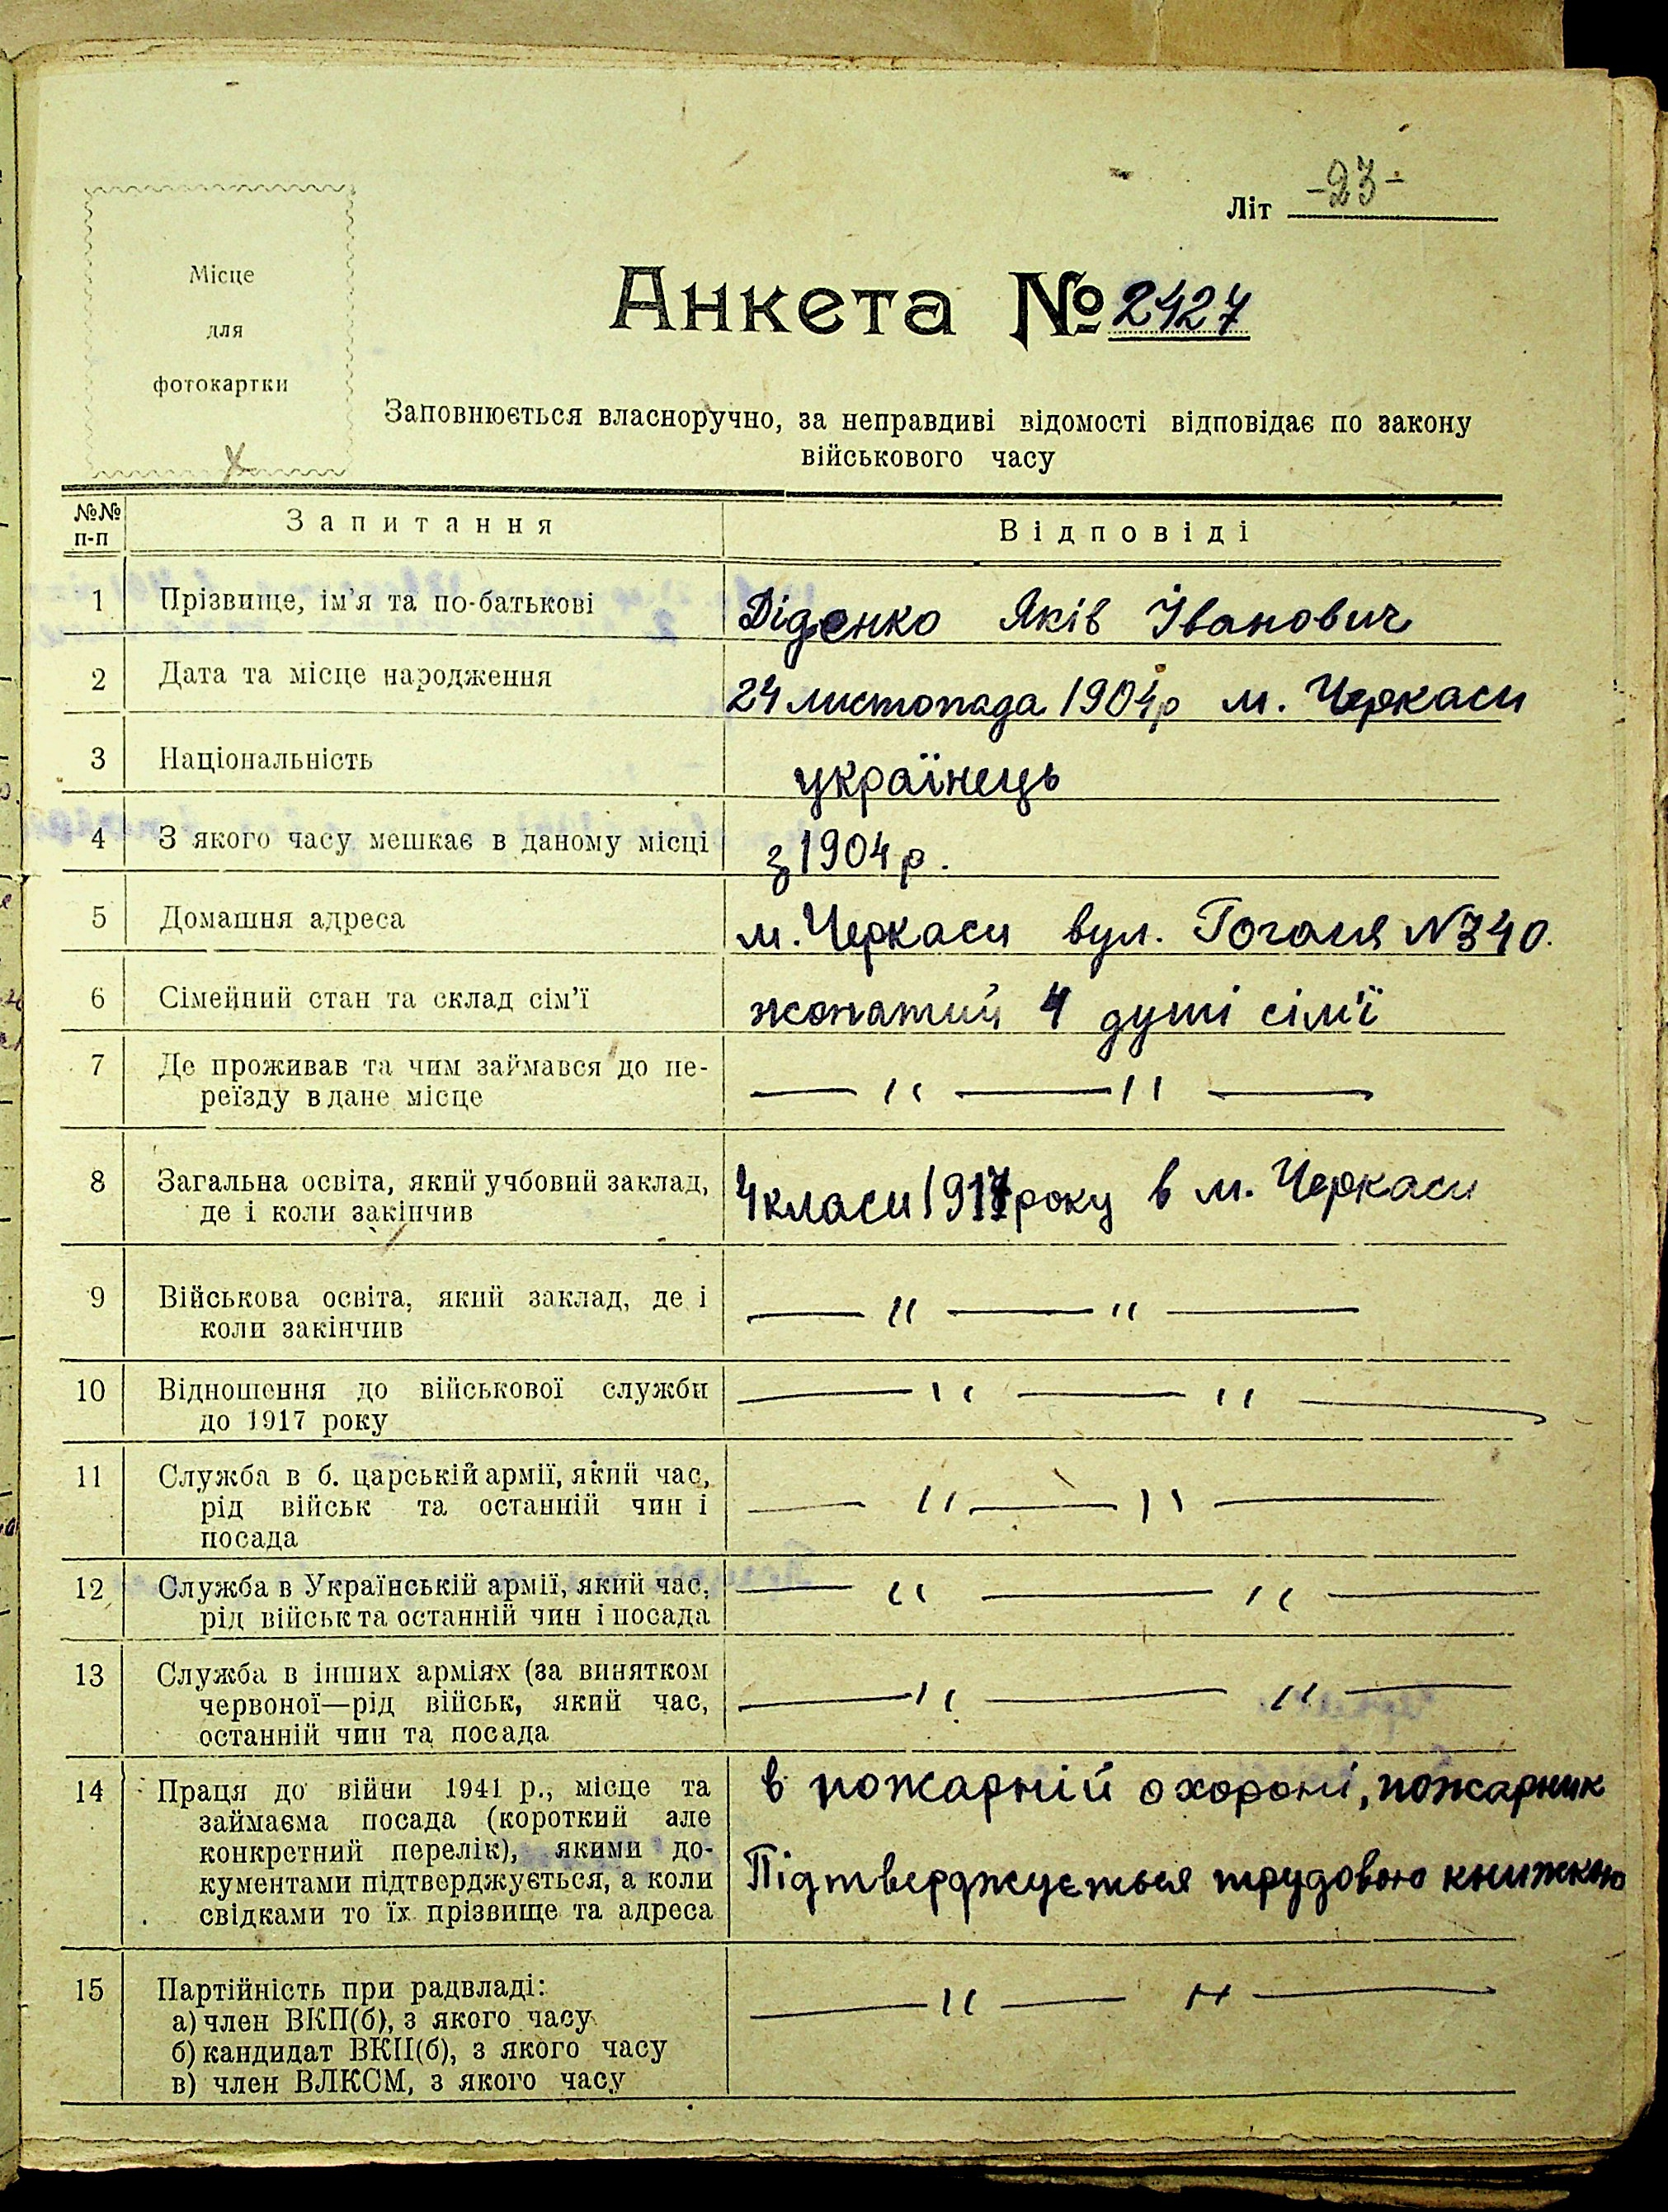 Літ -23-
Місце
для
фотокартки
Анкета № 2427
Заповнюється власноручно, за неправдиві відомості відповідає по закону
військового часу
№№ п-п
Запитання
Відповіді
1 Прізвище, ім'я та по-батькові
Діденко Яків Іванович
2 Дата та місце народження
24 листопада 1904 р м. Черкаси
3 Національність
українець
4 З якого часу мешкає в даному місці
з 1904 р.
5 Домашня адреса
м. Черкаси вул. Гоголя № 340.
6 Сімейний стан та склад сім'ї
жонатий 4 душі сім'ї
7 Де проживав та чим займався до пе-
реїзду в дане місце
— " — " —
8 Загальна освіта, який учбовий заклад,
де і коли закінчив
4 класи 1917 року в м. Черкаси
9 Військова освіта, який заклад, де і
коли закінчив
— " — " —
10 Відношення до військової служби
до 1917 року
— " — " —
11 Служба в б. царській армії, який час,
рід військ та останній чин і
посада
— " — " —
12 Служба в Українській армії, який час,
рід військ та останній чин і посада
— " — " —
13 Служба в інших арміях (за винятком
червоної—рід військ, який час,
останній чин та посада
— " — " —
14 Праця до війни 1941 р., місце та
займаєма посада (короткий але
конкретний перелік), якими до-
кументами підтверджується, а коли
свідками то їх прізвище та адреса
в пожарній охороні, пожарник
Підтверджується трудовою книжкою
15 Партійність при радвладі:
а) член ВКП(б), з якого часу
б) кандидат ВКП(б), з якого часу
в) член ВЛКСМ, з якого часу
— " — " —